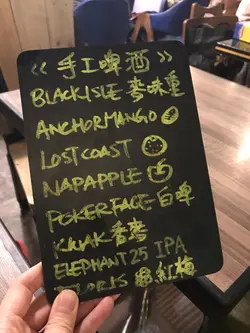 << 手工啤酒 >>
BLACK ISLE 麥味重
ANCHOR MANGO
LOST COAST
NAPAPPLE
POKER FACE-白啤
KWAK 香麥
ELEPHANT 25 IPA
FLORIS 紅梅